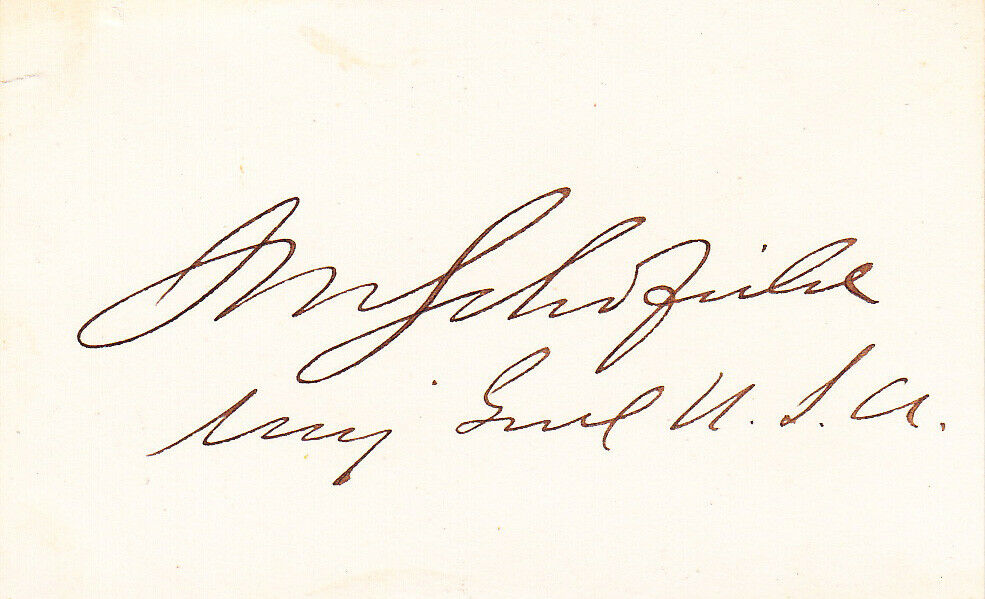 JMSchofield
Maj. Genl U. S. A.